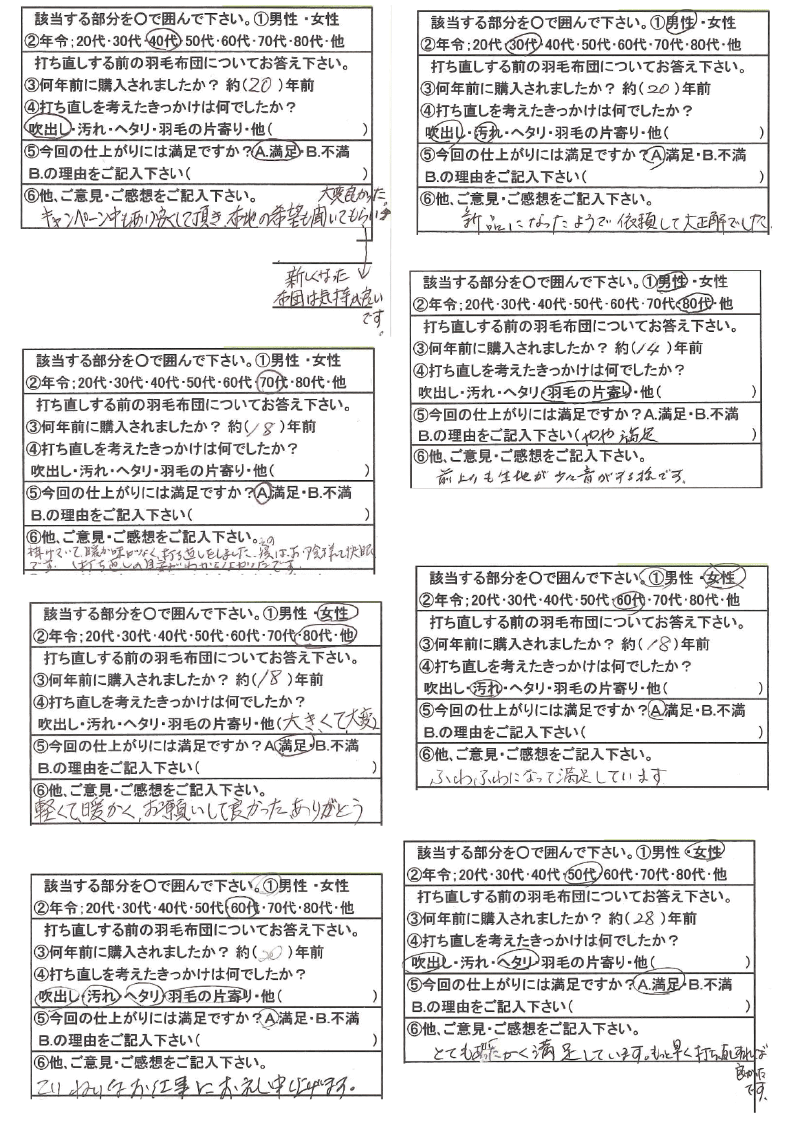 該当する部分を〇で囲んで下さい。①男性・女性
②年令;20代・30代・40代・50代・60代・70代・80代・他
打ち直しする前の羽毛布団についてお答え下さい。
③何年前に購入されましたか? 約(20)年前
④打ち直しを考えたきっかけは何でしたか?
吹出し・汚れ・ヘタリ・羽毛の片寄り・他( )
⑤今回の仕上がりには満足ですか?A.満足・B.不満
B.の理由をご記入下さい( )
⑥他、ご意見・ご感想をご記入下さい。
キャンペーン中もあり安くして頂き、布地の希望も聞いてもらい
大変良かった。
新しくなった
布団は気持が良い
です。
該当する部分を〇で囲んで下さい。①男性・女性
②年令;20代・30代・40代・50代・60代・70代・80代・他
打ち直しする前の羽毛布団についてお答え下さい。
③何年前に購入されましたか? 約(18)年前
④打ち直しを考えたきっかけは何でしたか?
吹出し・汚れ・ヘタリ・羽毛の片寄り・他( )
⑤今回の仕上がりには満足ですか?A.満足・B.不満
B.の理由をご記入下さい( )
⑥他、ご意見・ご感想をご記入下さい。
掛けていて、暖か味がなく、打ち直しをしました。
です。
該当する部分を〇で囲んで下さい。①男性・女性
②年令;20代・30代・40代・50代・60代・70代・80代・他
打ち直しする前の羽毛布団についてお答え下さい。
③何年前に購入されましたか? 約(18)年前
④打ち直しを考えたきっかけは何でしたか?
吹出し・汚れ・ヘタリ・羽毛の片寄り・他(大きくて大変)
⑤今回の仕上がりには満足ですか?A.満足・B.不満
B.の理由をご記入下さい( )
⑥他、ご意見・ご感想をご記入下さい。
軽くて、暖かく、お願いして良かったありがとう
該当する部分を〇で囲んで下さい。①男性・女性
②年令;20代・30代・40代・50代・60代・70代・80代・他
打ち直しする前の羽毛布団についてお答え下さい。
③何年前に購入されましたか? 約(30)年前
④打ち直しを考えたきっかけは何でしたか?
吹出し・汚れ・ヘタリ・羽毛の片寄り・他( )
⑤今回の仕上がりには満足ですか?A.満足・B.不満
B.の理由をご記入下さい( )
⑥他、ご意見・ご感想をご記入下さい。
ていねいなお仕事にお礼申し上げます。
該当する部分を〇で囲んで下さい。①男性・女性
②年令;20代・30代・40代・50代・60代・70代・80代・他
打ち直しする前の羽毛布団についてお答え下さい。
③何年前に購入されましたか? 約(20)年前
④打ち直しを考えたきっかけは何でしたか?
吹出し・汚れ・ヘタリ・羽毛の片寄り・他( )
⑤今回の仕上がりには満足ですか?A.満足・B.不満
B.の理由をご記入下さい( )
⑥他、ご意見・ご感想をご記入下さい。
新品になったようで依頼して大正解でした
該当する部分を〇で囲んで下さい。①男性・女性
②年令;20代・30代・40代・50代・60代・70代・80代・他
打ち直しする前の羽毛布団についてお答え下さい。
③何年前に購入されましたか? 約(14)年前
④打ち直しを考えたきっかけは何でしたか?
吹出し・汚れ・ヘタリ・羽毛の片寄り・他( )
⑤今回の仕上がりには満足ですか?A.満足・B.不満
B.の理由をご記入下さい(やや満足 )
⑥他、ご意見・ご感想をご記入下さい。
前よりも生地が少々音がする様です。
該当する部分を〇で囲んで下さい。①男性・女性
②年令;20代・30代・40代・50代・60代・70代・80代・他
打ち直しする前の羽毛布団についてお答え下さい。
③何年前に購入されましたか? 約(18)年前
④打ち直しを考えたきっかけは何でしたか?
吹出し・汚れ・ヘタリ・羽毛の片寄り・他( )
⑤今回の仕上がりには満足ですか?A.満足・B.不満
B.の理由をご記入下さい( )
⑥他、ご意見・ご感想をご記入下さい。
ふわふわになって満足しています
該当する部分を〇で囲んで下さい。①男性・女性
②年令;20代・30代・40代・50代・60代・70代・80代・他
打ち直しする前の羽毛布団についてお答え下さい。
③何年前に購入されましたか? 約(28)年前
④打ち直しを考えたきっかけは何でしたか?
吹出し・汚れ・ヘタリ・羽毛の片寄り・他( )
⑤今回の仕上がりには満足ですか?A.満足・B.不満
B.の理由をご記入下さい( )
⑥他、ご意見・ご感想をご記入下さい。
とてもあたたかく満足しています。もっと早く打ち直しすれば
良かった
です。